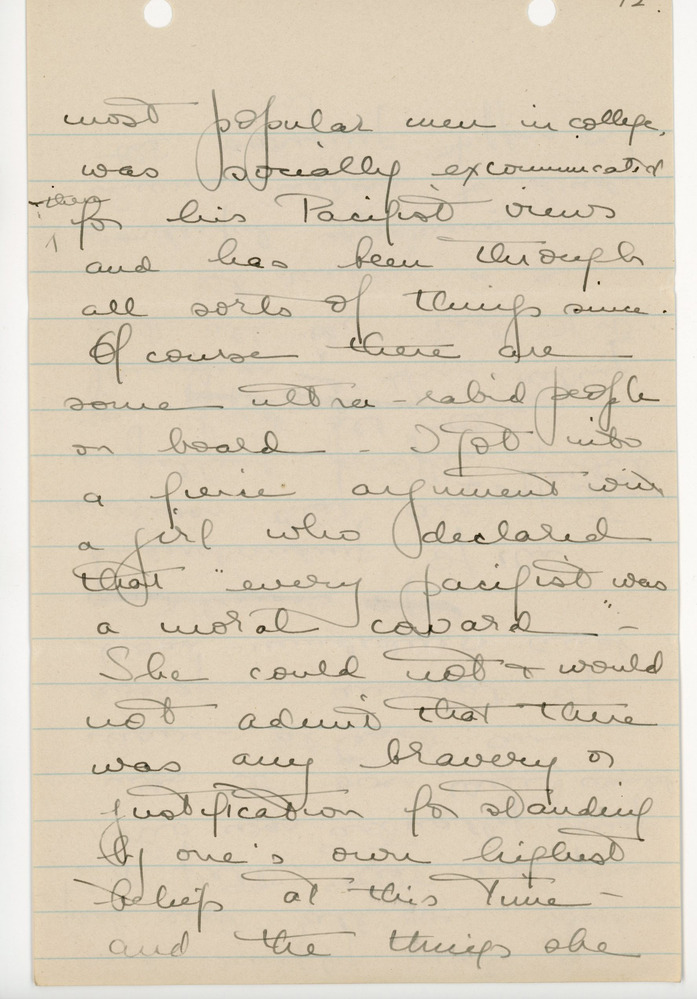 12.
most popular men in college,
was socially excommunicated
then
for his Pacifist views
and has been through
all sorts of things since.
Of course there are
some ultra-rabid people
on board - I got into
a fierce argument with
a girl who declared
that "every pacifist was
a moral coward" -
She could not + would
not admit that there
was any bravery or
justification for standing
by one's own highest
beliefs at this time -
and the things she